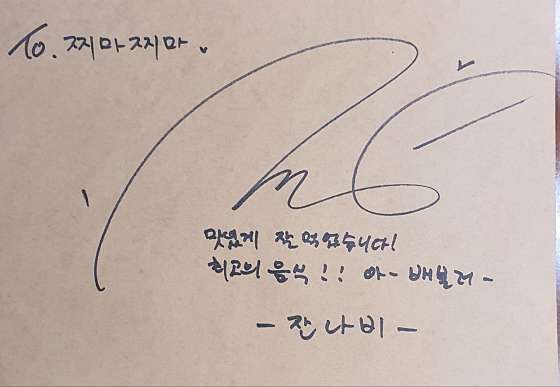 To. 찌마찌마.
맛있게 잘 먹었습니다!
최고의 음식!! 아- 배불러-
- 잔나비 -